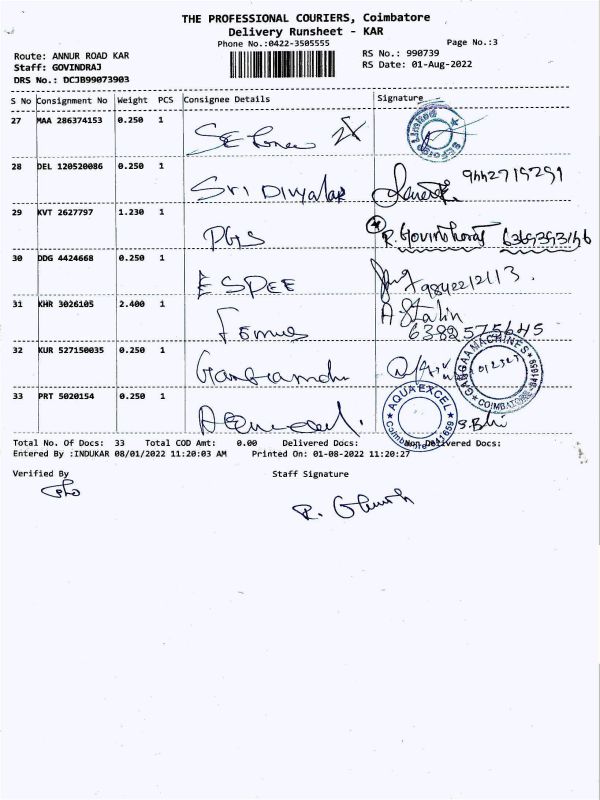 THE PROFESSIONAL COURIERS, Coimbatore
Delivery Runsheet - KAR
Phone No.:0422-3505555
Page No.:3
Route: ANNUR ROAD KAR
RS No.: 990739
Staff: GOVINDRAJ
RS Date: 01-Aug-2022
DRS No.: DCJB99073903
S No Consignment No Weight PCS Consignee Details Signature
27 MAA 286374153 0.250 1
28 DEL 120520086 0.250 1 Sri Divyalax
29 KVT 2627797 1.230 1 PGS
30 DDG 4424668 0.250 1 ESPEE 9842212113.
31 KHR 3026105 2.400 1 A Stalin
6382575645
32 KUR 527150035 0.250 1 GANGAA MACHINES COIMBATORE
33 PRT 5020154 0.250 1 AQUA EXCEL Coimbatore 641659
Total No. Of Docs: 33 Total COD Amt: 0.00 Delivered Docs: Non Delivered Docs:
Entered By :INDUKAR 08/01/2022 11:20:03 AM Printed On: 01-08-2022 11:20:27
Verified By Staff Signature